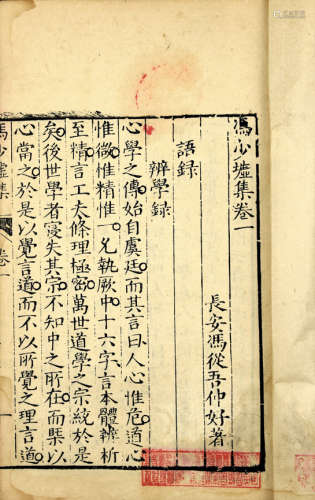 馮少墟集卷一
長安馮從吾仲好著
語録
辨學録
心學之傳始自虞廷而其言曰人心惟危道心
惟微惟精惟一允執厥中十六字言本體辨析
至精言工夫條理極密萬世道學之宗統於是
矣後世學者寖失其宗不知中之所在而槩以
心當之於是以覺言道而不以所覺之理言道
馮少墟集
卷一